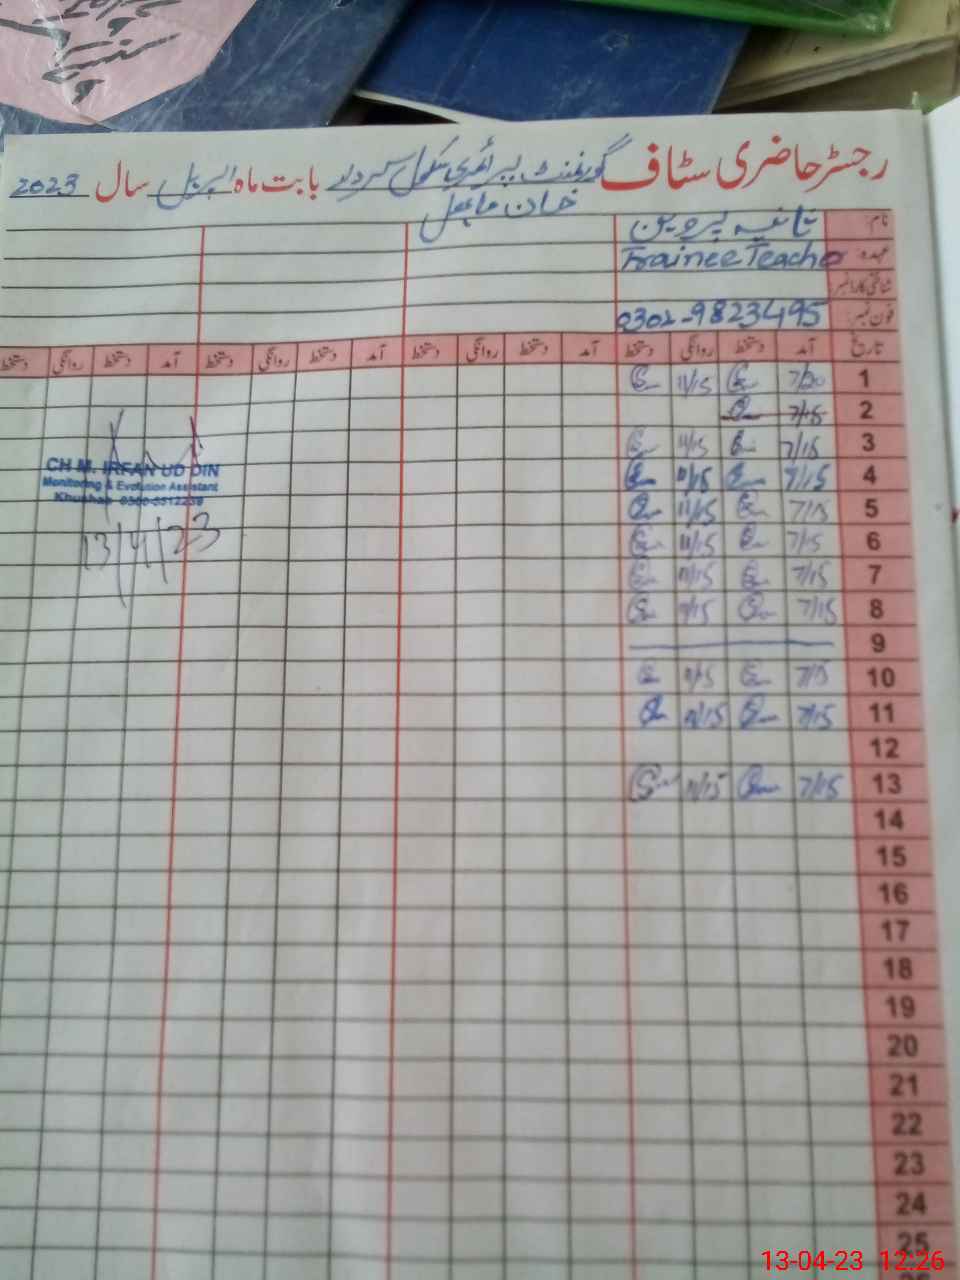 رجسٹر حاضری سٹاف گورنمنٹ پرائمری سکول سردار بابت ماہ اپریل سال 2023
خان
نام ثانیہ پروین
عہدہ Trainee Teacher
شناختی کارڈ نمبر
فون نمبر: 0302-9823495
تاریخ آمد دستخط روانگی دستخط آمد دستخط روانگی دستخط آمد دستخط روانگی دستخط آمد دستخط روانگی دستخط
1 7/20 11/15
2 7/15
3 7/15 11/15
4 7/15 11/15
5 7/15 11/15
6 7/15 11/15
7 7/15 11/15
8 7/15 11/15
9
10 7/15 11/15
11 7/15 11/15
12
13 7/15 11/15
14
15
16
17
18
19
20
21
22
23
24
25
CH M. IRFAN UD DIN
Monitoring & Evolution Assistant
Khushab
13/4/23
13-04-23 12:26